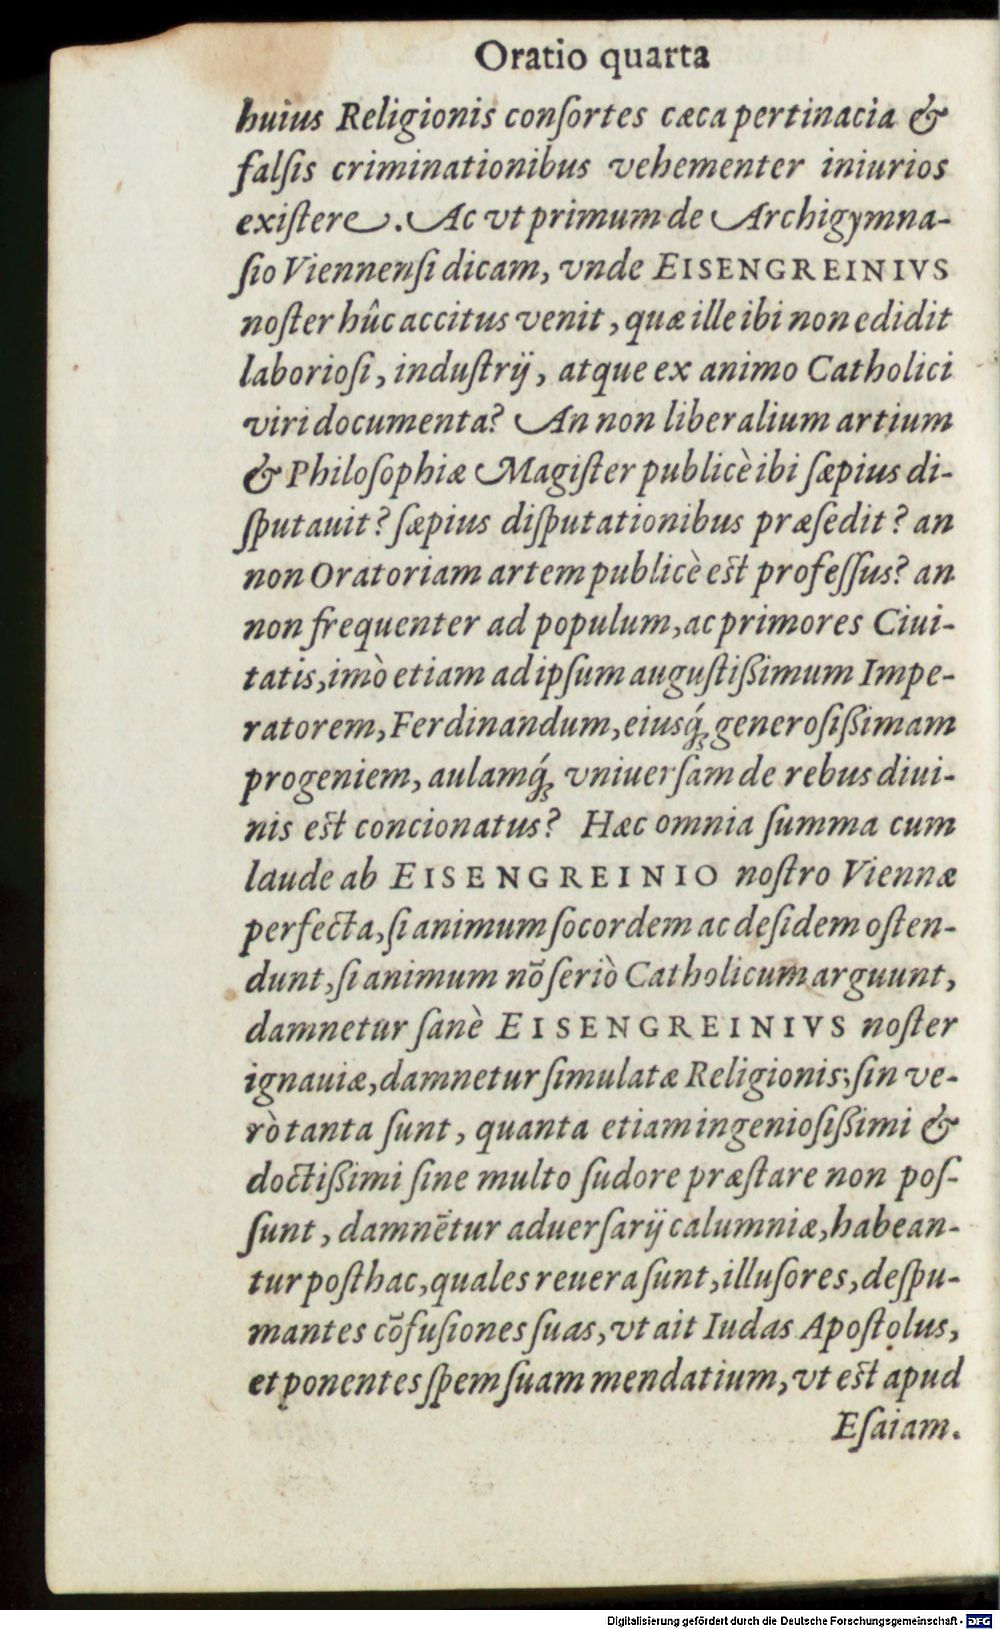 Oratio quarta
huius Religionis conſortes cæca pertinacia &
falſis criminationibus vehementer iniurios
exiſtere. Ac vt primum de Archigymna-
ſio Viennenſi dicam, vnde EISENGREINIVS
noſter hûc accitus venit, quæ ille ibi non edidit
laborioſi, induſtrij, atque ex animo Catholici
viri documenta? An non liberalium artium
& Philoſophiæ Magiſter publicè ibi ſæpius di-
ſputauit? ſæpius diſputationibus præſedit? an
non Oratoriam artem publicè eſt profeſſus? an
non frequenter ad populum, ac primores Ciui-
tatis, imò etiam ad ipſum auguſtißimum Impe-
ratorem, Ferdinandum, eiusq́ꝫ generoſißimam
progeniem, aulamq́ꝫ vniuerſam de rebus diui-
nis eſt concionatus? Hæc omnia ſumma cum
laude ab EISENGREINIO noſtro Viennæ
perfecta, ſi animum ſocordem ac deſidem oſten-
dunt, ſi animum nō ſeriò Catholicum arguunt,
damnetur ſanè EISENGREINIVS noſter
ignauiæ, damnetur ſimulatæ Religionis; ſin ve-
rò tanta ſunt, quanta etiam ingenioſißimi &
doctißimi ſine multo ſudore præſtare non poſ-
ſunt, damnētur aduerſarij calumniæ, habean-
tur poſthac, quales reuera ſunt, illuſores, deſpu-
mantes cōfuſiones ſuas, vt ait Iudas Apoſtolus,
et ponentes ſpem ſuam mendatium, vt eſt apud
Eſaiam.
Digitalisierung gefördert durch die Deutsche Forschungsgemeinschaft - DFG